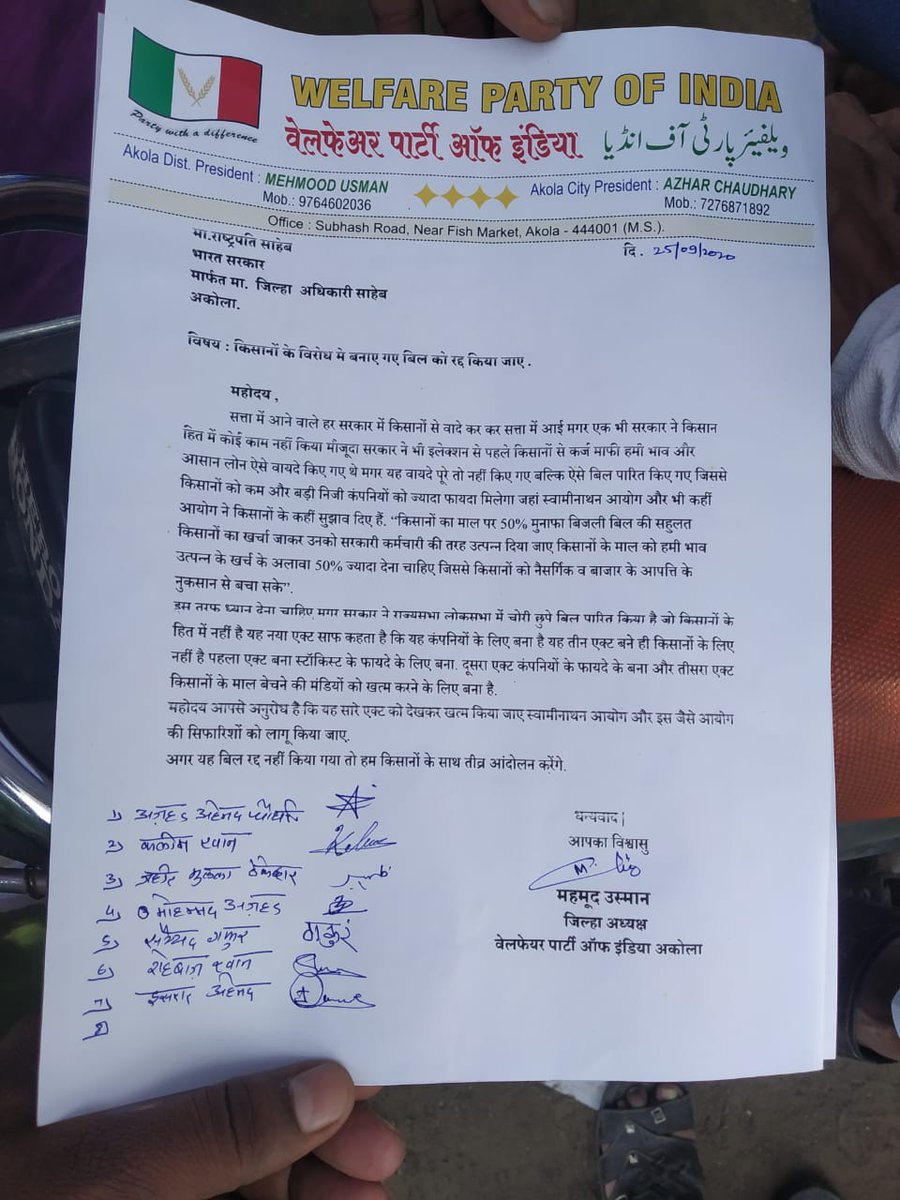 WELFARE PARTY OF INDIA
Party with a difference
वेलफेअर पार्टी ऑफ इंडिया ویلفیئر پارٹی آف انڈیا
Akola Dist. President : MEHMOOD USMAN
Mob.: 9764602036
Akola City President : AZHAR CHAUDHARY
Mob.: 7276871892
Office : Subhash Road, Near Fish Market, Akola - 444001 (M.S.).
मा.राष्ट्रपति साहेब
दि. 25/09/2020
भारत सरकार
मार्फत मा. जिल्हा अधिकारी साहेब
अकोला.
विषय : किसानों के विरोध मे बनाए गए बिल को रद्द किया जाए .
महोदय ,
सत्ता में आने वाले हर सरकार में किसानों से वादे कर कर सत्ता में आई मगर एक भी सरकार ने किसान
हित में कोई काम नहीं किया मौजूदा सरकार ने भी इलेक्शन से पहले किसानों से कर्ज माफी हमी भाव और
आसान लोन ऐसे वायदे किए गए थे मगर यह वायदे पूरे तो नहीं किए गए बल्कि ऐसे बिल पारित किए गए जिससे
किसानों को कम और बड़ी निजी कंपनियों को ज्यादा फायदा मिलेगा जहां स्वामीनाथन आयोग और भी कहीं
आयोग ने किसानों के कहीं सुझाव दिए हैं. “किसानों का माल पर 50% मुनाफा बिजली बिल की सहुलत
किसानों का खर्चा जाकर उनको सरकारी कर्मचारी की तरह उत्पन्न दिया जाए किसानों के माल को हमी भाव
उत्पन्न के खर्च के अलावा 50% ज्यादा देना चाहिए जिससे किसानों को नैसर्गिक व बाजार के आपत्ति के
नुकसान से बचा सके”.
इस तरफ ध्यान देना चाहिए मगर सरकार ने राज्यसभा लोकसभा में चोरी छुपे बिल पारित किया है जो किसानों के
हित में नहीं है यह नया एक्ट साफ कहता है कि यह कंपनियों के लिए बना है यह तीन एक्ट बने ही किसानों के लिए
नहीं है पहला एक्ट बना स्टॉकिस्ट के फायदे के लिए बना. दूसरा एक्ट कंपनियों के फायदे के बना और तीसरा एक्ट
किसानों के माल बेचने की मंडियों को खत्म करने के लिए बना है.
महोदय आपसे अनुरोध है कि यह सारे एक्ट को देखकर खत्म किया जाए स्वामीनाथन आयोग और इस जैसे आयोग
की सिफारिशों को लागू किया जाए.
अगर यह बिल रद्द नहीं किया गया तो हम किसानों के साथ तीव्र आंदोलन करेंगे.
1) अज़हर अहेमद चौधरी
2) कलीम खान
3) ठेकेदार
4) मोहम्मद अज़हर
5) सैय्यद गफुर गफुर
6) शेहबाज़ खान
7) इसरार अहेमद
8)
धन्यवाद|
आपका विश्वासु
महमूद उस्मान
जिल्हा अध्यक्ष
वेलफेयर पार्टी ऑफ इंडिया अकोला